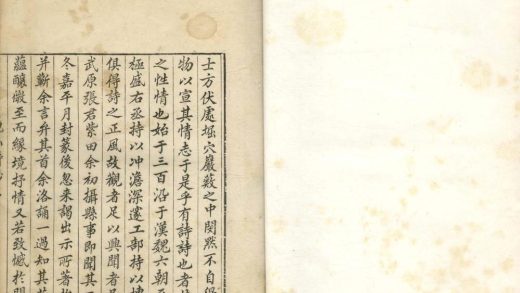 士方伏處堀穴巖薮之中閔然不自
物以宣其情志于是乎有詩詩也者
之性情也始于三百沿于漢魏六朝至
極盛右丞持以冲澹深邃工部持以
俱得詩之正風故觀者足以興聞者
武原張君紫田余初攝縣事即聞其
冬嘉平月封篆後忽来謁出示所著
并蘄余言弁其首余洛誦一過知其
蘊釀媺至而緣境抒情又若致憾於